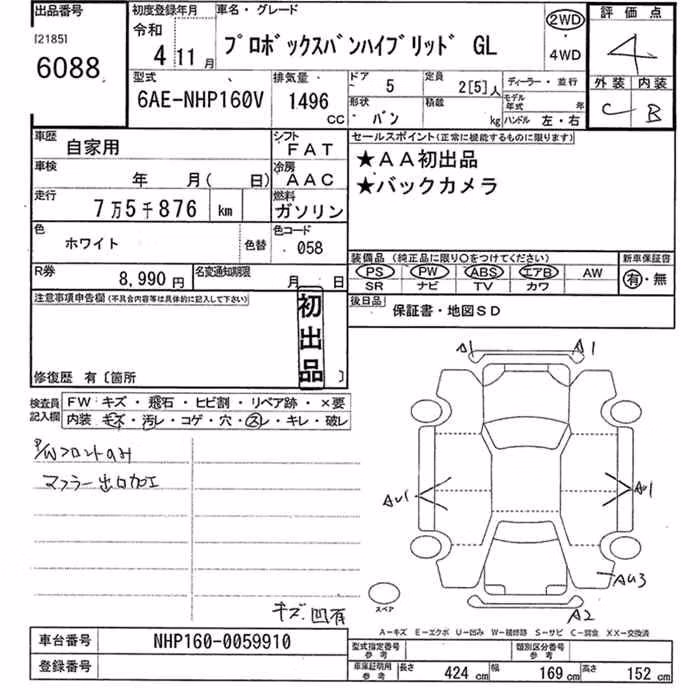 出品番号
[2185]
6088
初度登録年月
令和
4 11 月
車名・グレード
プロボックスバンハイブリッド GL
2WD
・
4WD
評価点
4
外装 内装
C B
型式
6AE-NHP160V
排気量
1496
CC
ドア
5
定員
2[5]人
形状
バン
積載
kg
ディーラー・並行
モデル年式 年
ハンドル 左・右
車歴
自家用
シフト
FAT
車検
年 月( 日)
冷房
AAC
走行
7万5千876 km
燃料
ガソリン
色
ホワイト
色替
色コード
058
R券
8,990 円
名変通知期限
月 日
セールスポイント(正常に機能するものに限ります)
★AA初出品
★バックカメラ
装備品 (純正品に限り○をつけてください)
新車保証書
PS PW ABS エアB AW
SR ナビ TV カワ
有・無
後日品
保証書・地図SD
注意事項申告欄(不具合内容等は具体的に記入して下さい)
初出品
修復歴 有〔箇所 〕
検査員記入欄
FW キズ・飛石・ヒビ割・リペア跡・×要
内装 キズ・汚レ・コゲ・穴・スレ・キレ・破レ
P/Wフロントのみ
マフラー出口加工
キズ.凹有
A1 A1
AU1 AU1
AU3
A2
スペア
A-キズ E-エクボ U-凹み W-補修跡 S-サビ C-腐食 XX-交換済
車台番号
NHP160-0059910
登録番号
型式指定番号
参考
類別区分番号
参考
車庫証明用
参考
長さ 424 cm 幅 169 cm 高さ 152 cm